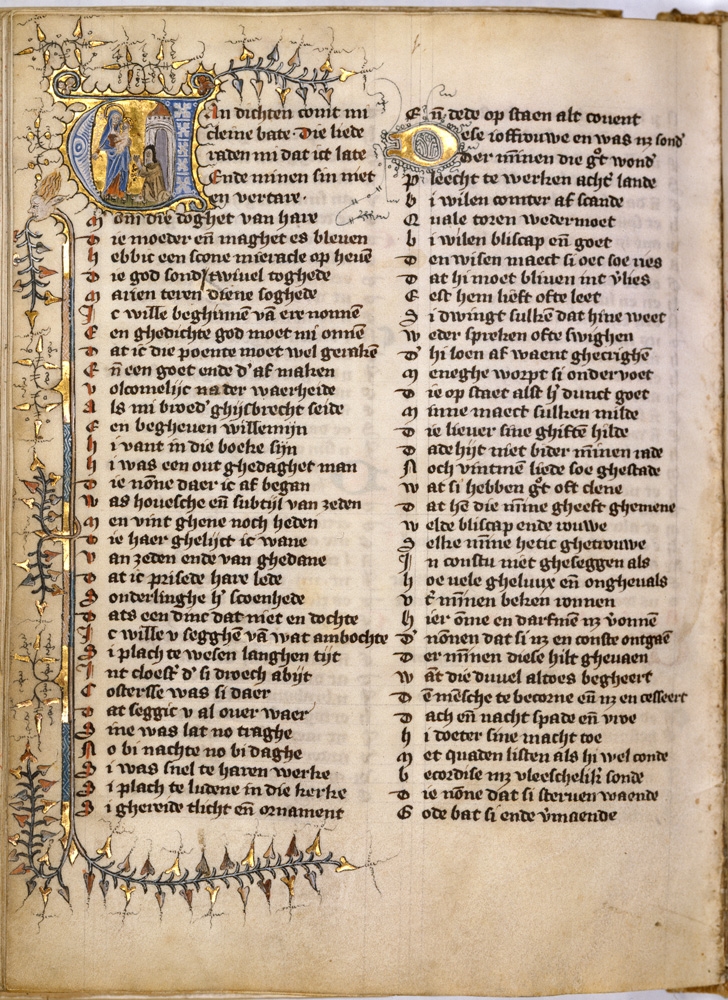 Van dichten comt mi
cleine bate. Die liede
raden mi dat ict late
Ende minen sin niet
en vertare.
Om die doghet van hare
Die moeder eñ maghet es bleuen
hebbic een scone mieracle op heuē
Die god sonder twiuel toghede
Marien teren diene soghede
Ic wille beghinnen vā ere nonnē
Een ghedichte god moet mi onnē
Dat ic die poente moet wel geraken
Eñ een goet ende d' af maken
volcomelijc na der waerheide
Als mi broed' ghijsbrecht seide
Een begheuen willemijn
hi vant in die boeke sijn
hi was een out ghedaghet man
Die nōne daer ic af began
was houesche eñ subtijl van zeden
Men vint ghene noch heden
Die haer ghelijct ic wane
van zeden ende van ghedane
Dat ic prisede hare lede
Sonderlinghe h' scoenhede
Dats een dinc dat niet en dochte
Ic wille v segghē vā wat ambochte
Si plach te wesen langhen tijt
Int cloest' d' si droech abijt
Costersse was si daer
Dat seggic v al ouer waer
Sine was lat no traghe
No bi nachte no bi daghe
Si was snel te haren werke
Si plach te ludene in die kerke
Si ghereide tlicht eñ ornament
Eñ dede op staen alt couent
Dese ioffrouwe en was nz sond'
Der m̄nen die gͦt wond'
pleecht te werken acht' lande
bi wilen comter af scande
Quale toren wedermoet
bi wilen bliscap eñ goet
Den wisen maect si oec soe ries
Dat hi moet bliuen int v'lies
Eest hem lieft ofte leet
Si dwingt sulkē dat hine weet
weder spreken ofte swighen
D' hi loen af waent ghecrighē
Meneghe worpt si onder voet
Die op staet alst h' dunct goet
Minne maect sulken milde
Die lieuer sine ghiften hilde
Dade hijt niet bider m̄nen rade
Noch vintmē liede soe ghestade
wat si hebben gͦt oft clene
Dat hē die m̄ne gheeft ghemene
welde bliscap ende rouwe
Selke m̄ne hetic ghetrouwe
In constu niet gheseggen als
hoe vele gheluux eñ onghevals
vt' m̄nen beken ronnen
hier ōme en darfmē nz vonnē
D' nōnen dat si nz en conste ontgaē
Der m̄nen diese hilt gheuaen
wāt die duuel altoes begheert
Dē mēsche te becorne eñ nz en cesseert
Dach eñ nacht spade eñ vroe
hi doeter sine macht toe
Met quaden listen als hi wel conde
becordise mz vleeschelik' sonde
Die nōne dat si steruen waende
Gode bat si ende v'maende